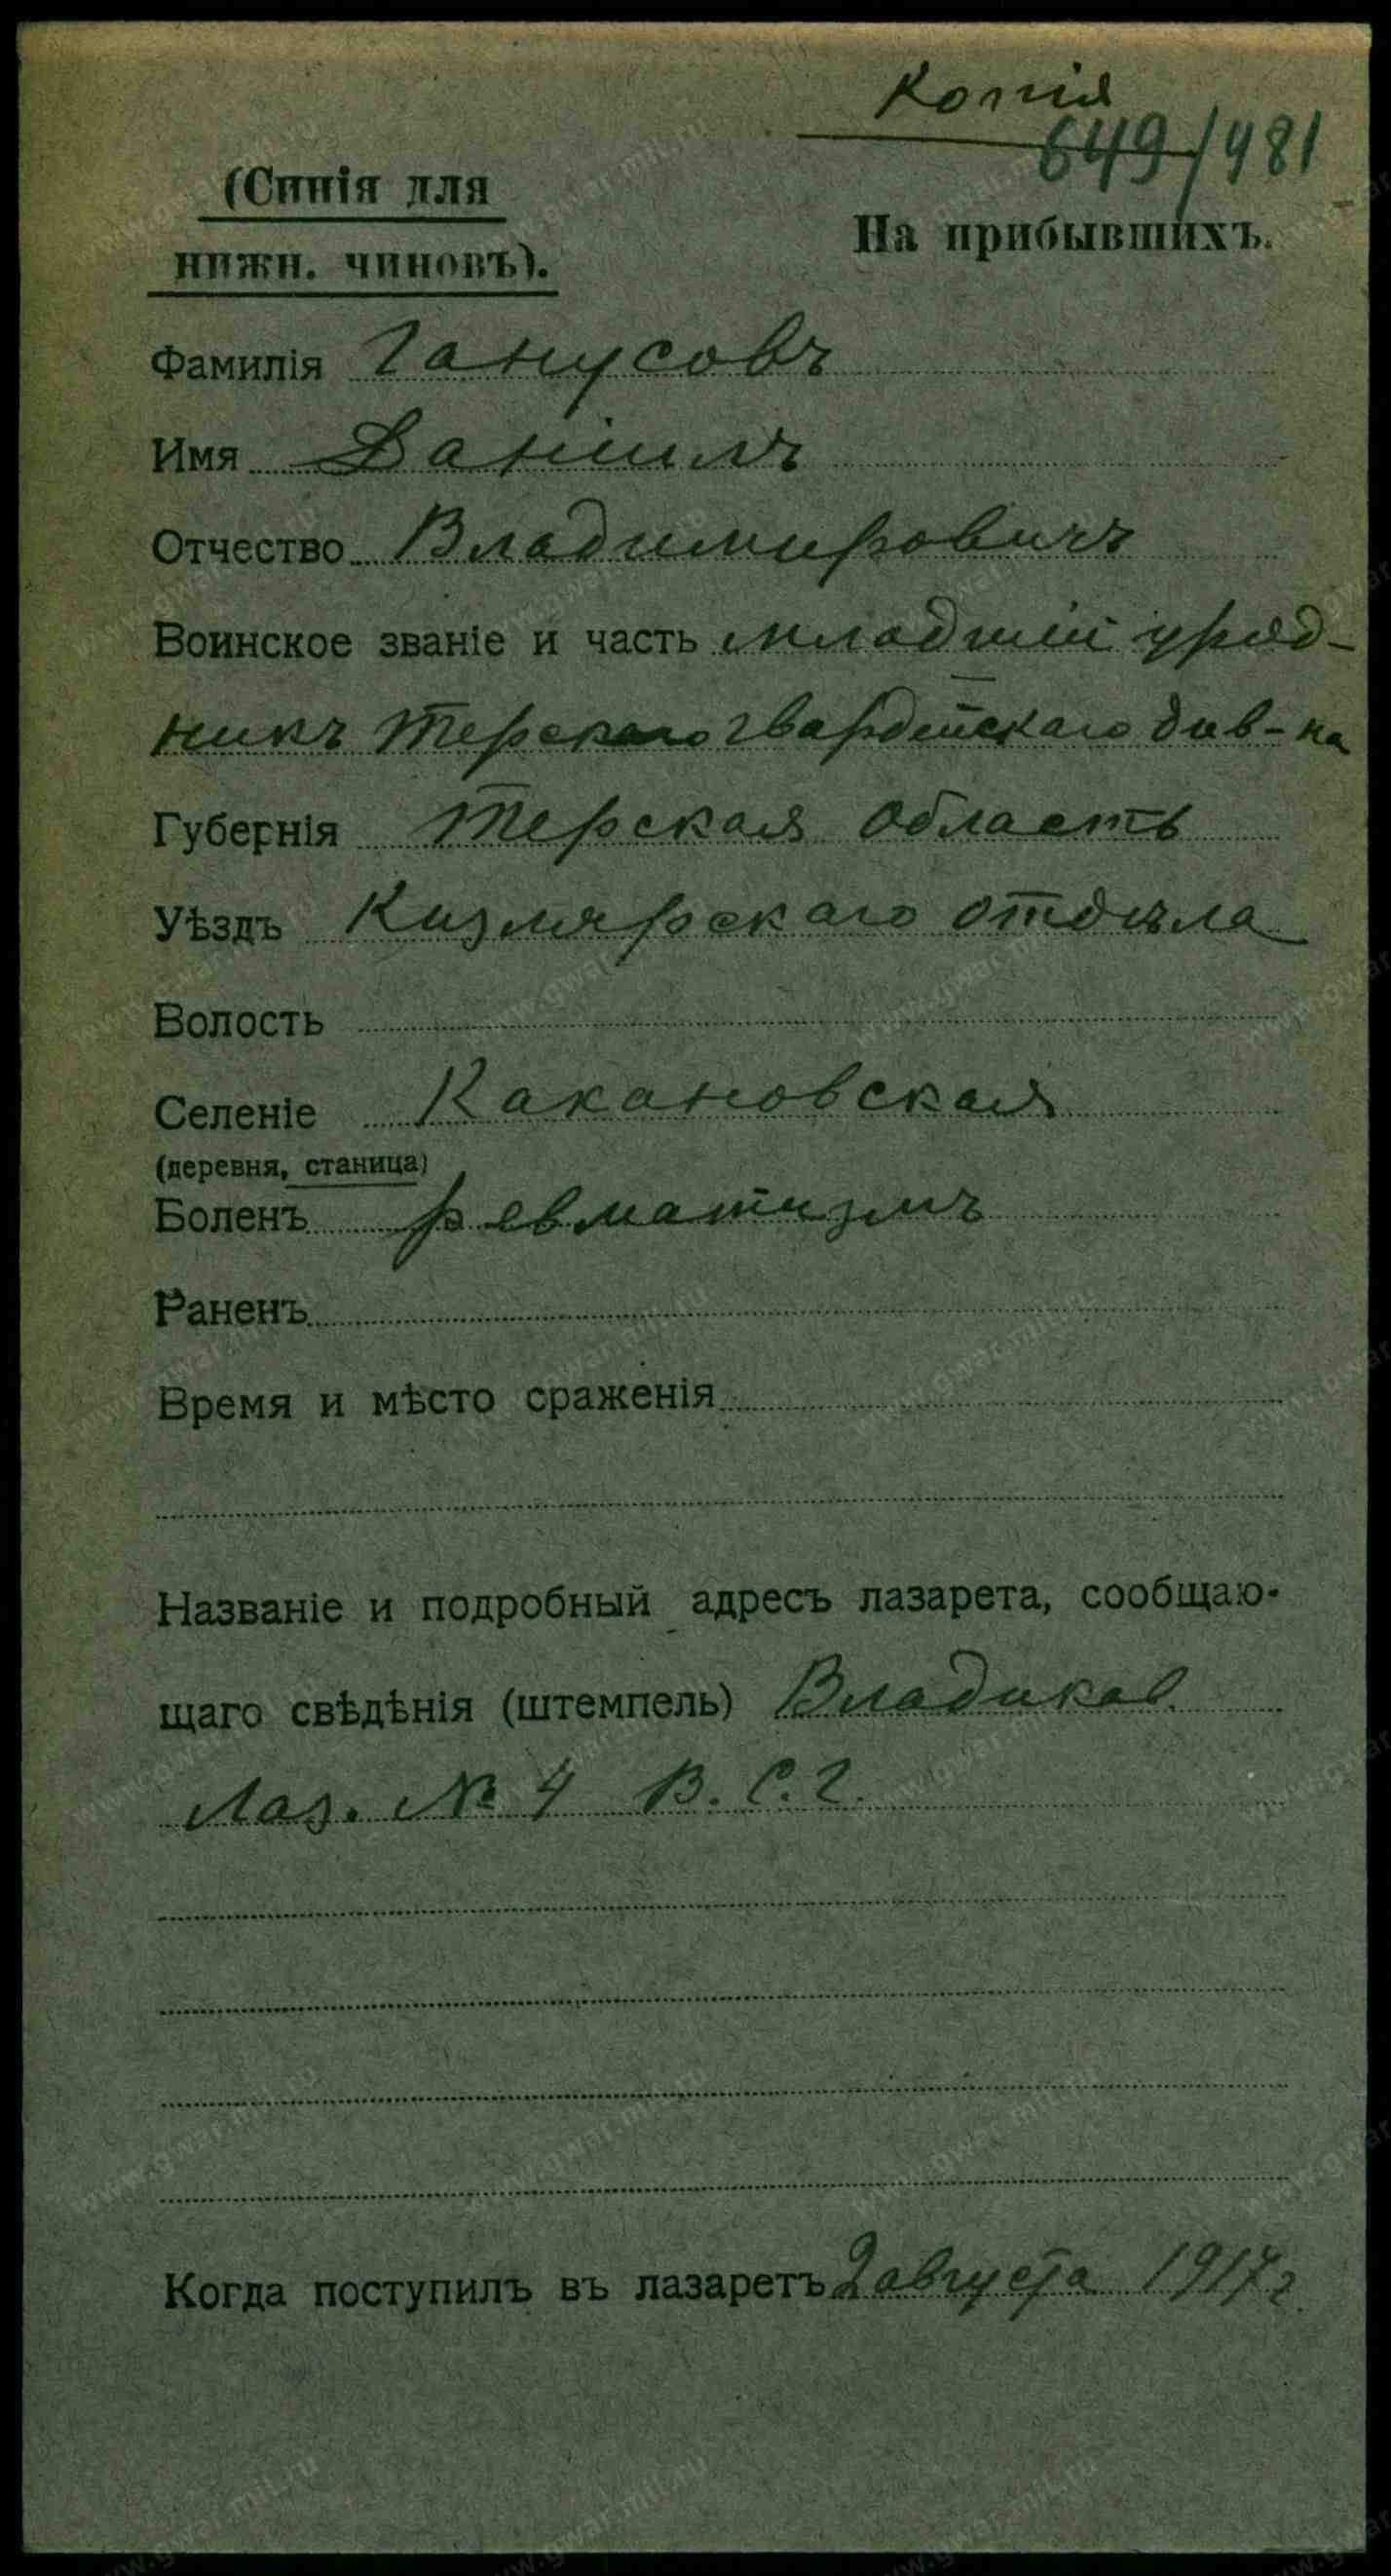 Копія
649/481
(Синія для
нижн. чиновъ).
На прибывшихъ.
Фамилія Ганусовъ
Имя Даніилъ
Отчество Владимировичъ
Воинское званіе и часть младшій уряд-
никъ Терскаго гвардейскаго див-на
Губернія Терская область
Уѣздъ Кизлярскаго отдѣла
Волость
Селеніе Какановская
(деревня, станица)
Боленъ ревматизмъ
Раненъ
Время и мѣсто сраженія
Названіе и подробный адресъ лазарета, сообщаю-
щаго свѣдѣнія (штемпель) Владикав.
Лаз. № 4 В. С. Г.
Когда поступилъ въ лазаретъ 2 августа 1917 г.